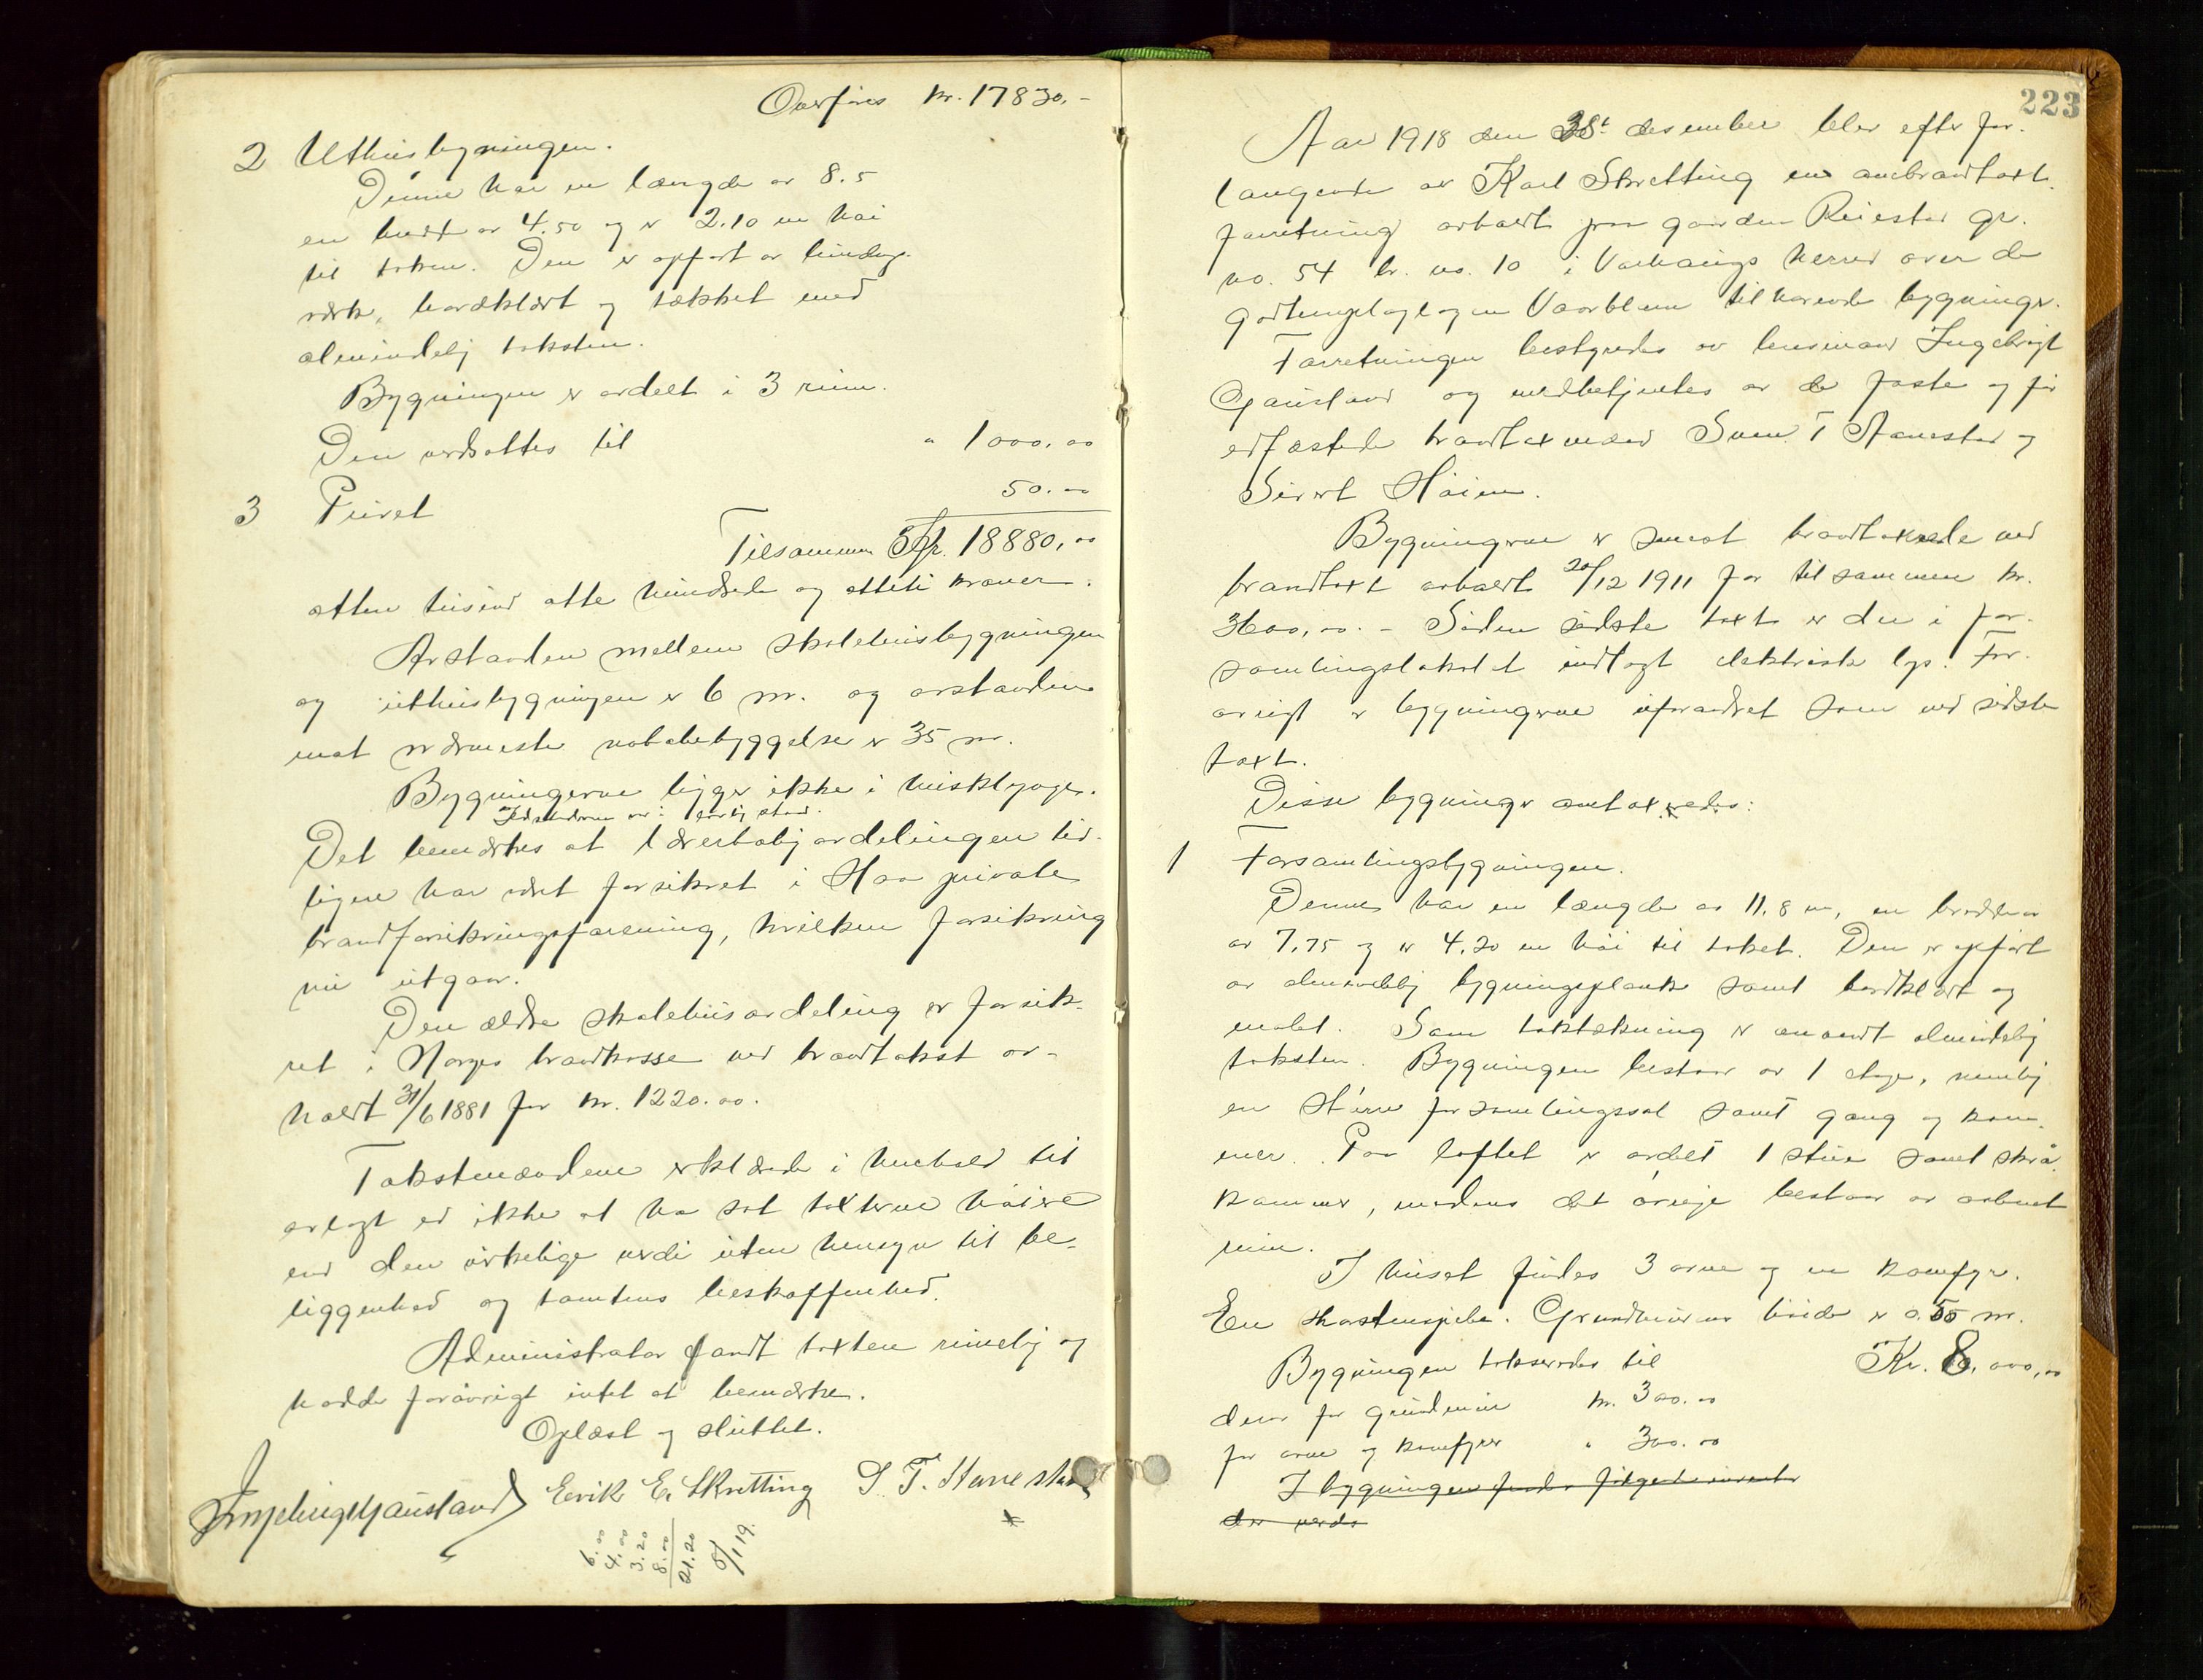 Overføres kr. 17830,-
2 Uthusbygningen.
Denne har en længde av 8.5
en bredde av 4.50 og er 2.10 m høi
til taken. Den er opført av bindings-
værk, bordklædt og tækket med
almindelig taksten.
Bygningen er avdelt i 3 rum.
Den verdsattes til " 1000,00
3 Privet 50.00
Tilsammen Kr. 18880,00
atten tusind otte hundrede og otteti kroner.
Avstanden mellem skolehusbygningen
og uthusbygningen er 6 m. og avstanden
mot nærmeste nabobebyggelse er 35 m.
Bygningerne ligger ikke i husklynge.
Ildstederne er i lovlig stand.
Det bemærkes at lærerbolig avdelingen tid-
ligere har været forsikret i Haa private
brandforsikringsforening, hvilken forsikring
nu utgaar.
Den ældre skolehusavdeling er forsik-
ret i Norges brandkasse ved brandtakst av-
holdt 31/6 1881 for kr. 1220.00.
Takstmændene erklærede i henhold til
avlagt ed ikke at ha sat taxterne høiere
end den virkelige verdi uten hensyn til be-
liggenhed og tomtens beskaffenhed.
Administrator fandt taxten rimelig og
hadde forøvrigt intet at bemærke.
Oplæst og sluttet.
Ingebrigt Gausland Erik E. Skretting S. T. Aanestad
6.00
4.00
3.20
8.00
21.20
6/1 19.
223
Aar 1918 den 28de desember blev efter for-
langende av Karl Skretting en ombrandtaxt
forretning avholdt paa gaarden Reiestad gr.
no. 54 br. no. 10 i Varhaugs herred over de
godtemplarlogen Vaarblom tilhørende bygninger.
Forretningen bestyredes av lensmand Ingebrigt
Gausland og medbetjentes av de faste og før
edfæstede brandtaxmænd Sven T Aanestad og
Sivert Høien.
Bygningerne er senest brandtaxerede ved
brandtaxt avholdt 20/12 1911 for tilsammen kr.
3600,00. - Siden sidste taxt er der i for-
samlingslokalet indlagt elektrisk lys. For-
øvrigt er bygningerne uforandret som ved sidste
taxt.
Disse bygninger omtaxeredes:
1 Forsamlingsbygningen.
Denne har en længde av 11.8 m, en bredde
av 7.75 og er 4.20 m høi til taket. Den er opført
av almindelig bygningsplank samt bordklædt og
malet. Som taktækning er anvendt almindelig
taksten. Bygningen bestaar av 1 etage, nemlig
en større forsamlingssal samt gang og kam-
mer. Paa loftet er avdelt 1 stue samt skraa-
kammer, medens det øvrige bestaar av aabent
rum.
I huset findes 3 ovne og en komfyr.
En skorstenspibe. Grundmurens høide er 0.55 m.
Bygningen takseredes til Kr. 8,000,00
derav for grundmur kr. 300.00
for ovne og komfyrer " 300.00
I bygningen findes følgende inventar
der verds